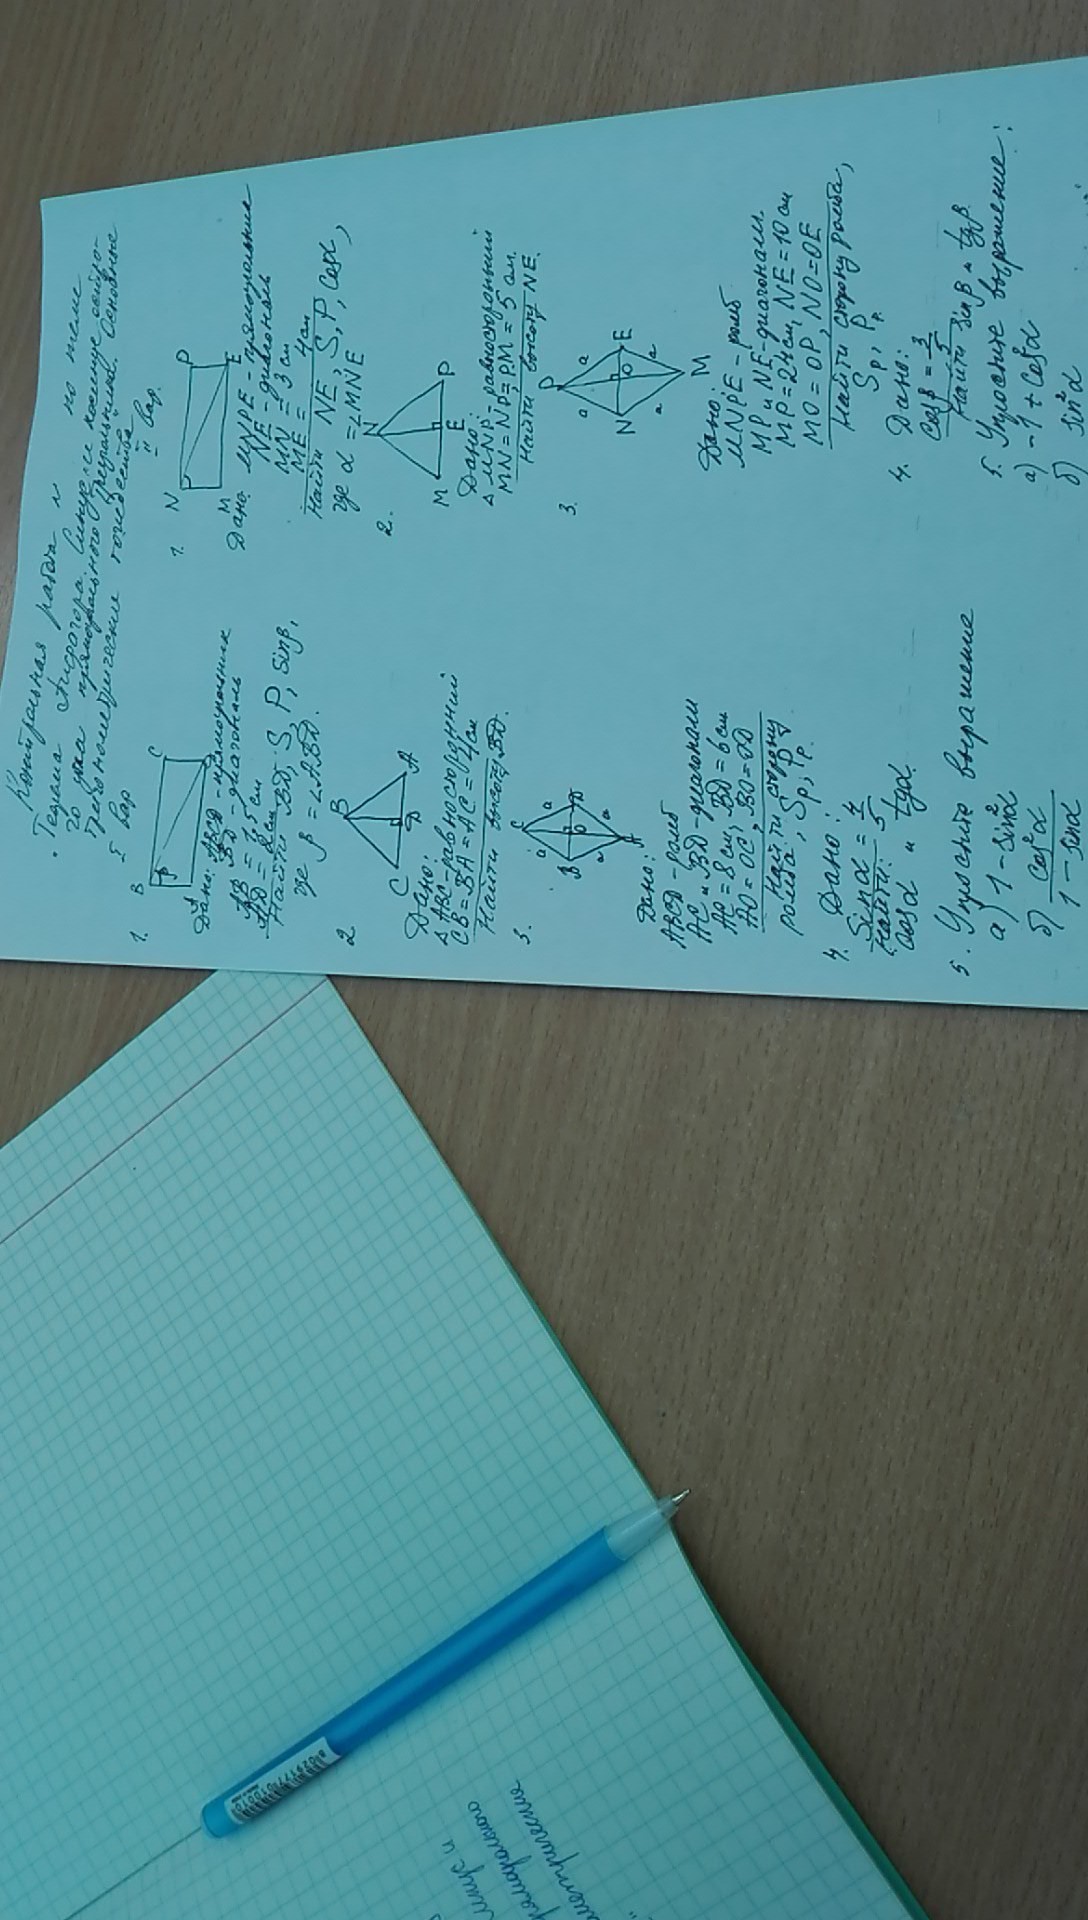 Контрольная работа № по теме
"Теорема Пифагора. Синус и косинус острого угла прямоугольного треугольника. Основные
тригонометрические тождества"
I вар
1.
B
C
D
Дано: ABCD - прямоугольник
BD - диагональ
AB = 1,5 см
AD = 2 см
Найти BD, S, P, sinβ,
где β = ∠ABD.
2
B
C
D
A
Дано:
△ABC - равносторонний
CB = BA = AC = 4 см
Найти высоту BD.
3.
C
a
a
B
O
D
a
a
A
Дано:
ABCD - ромб
AC и BD - диагонали
AC = 8 см, BD = 6 см
AO = OC, BO = OD
Найти сторону
ромба, Sр, Pр.
4. Дано:
Sinα = 4/5
Найти:
cosα и tgα
5. Упростите выражение
а) 1 - sin²α
б) cos²α / 1 - sinα
II вар.
1.
N
P
M
E
Дано: MNPE - прямоугольник
NE - диагональ
MN = 3 см
ME = 4 см
Найти NE, S, P, cosα,
где α = ∠MNE
2.
N
M
E
P
Дано:
△MNP - равносторонний
MN = NP = PM = 5 см.
Найти высоту NE.
3.
P
a
a
N
O
E
a
a
M
Дано:
MNPE - ромб
MP и NE - диагонали.
MP = 24 см, NE = 10 см
MO = OP, NO = OE
Найти сторону ромба,
Sр, Pр.
4. Дано:
cosβ = 3/5
Найти sinβ и tgβ.
5. Упростите выражение:
а) -1 + cos²α
б) sin²α
синус и
прямоугольного